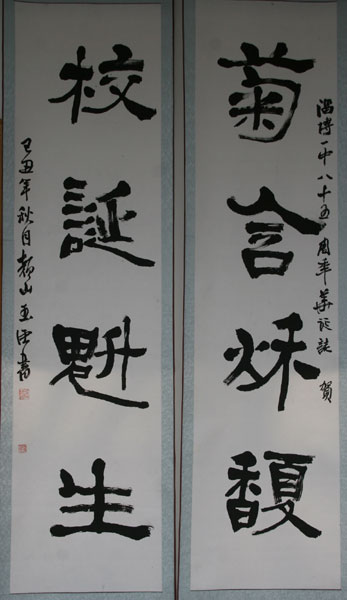 淄博一中八十五周年華誕誌賀
菊含秋馥
校誕魁生
己丑年秋月山書